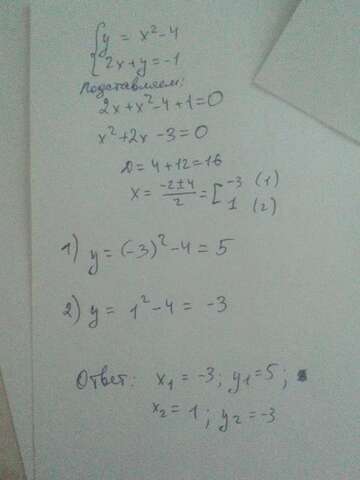 { y = x² - 4
{ 2x + y = -1
Подставляем:
2x + x² - 4 + 1 = 0
x² + 2x - 3 = 0
D = 4 + 12 = 16
x = (-2 ± 4)/2 = [ -3 (1)
1 (2)
1) y = (-3)² - 4 = 5
2) y = 1² - 4 = -3
Ответ: x₁ = -3; y₁ = 5;
x₂ = 1; y₂ = -3